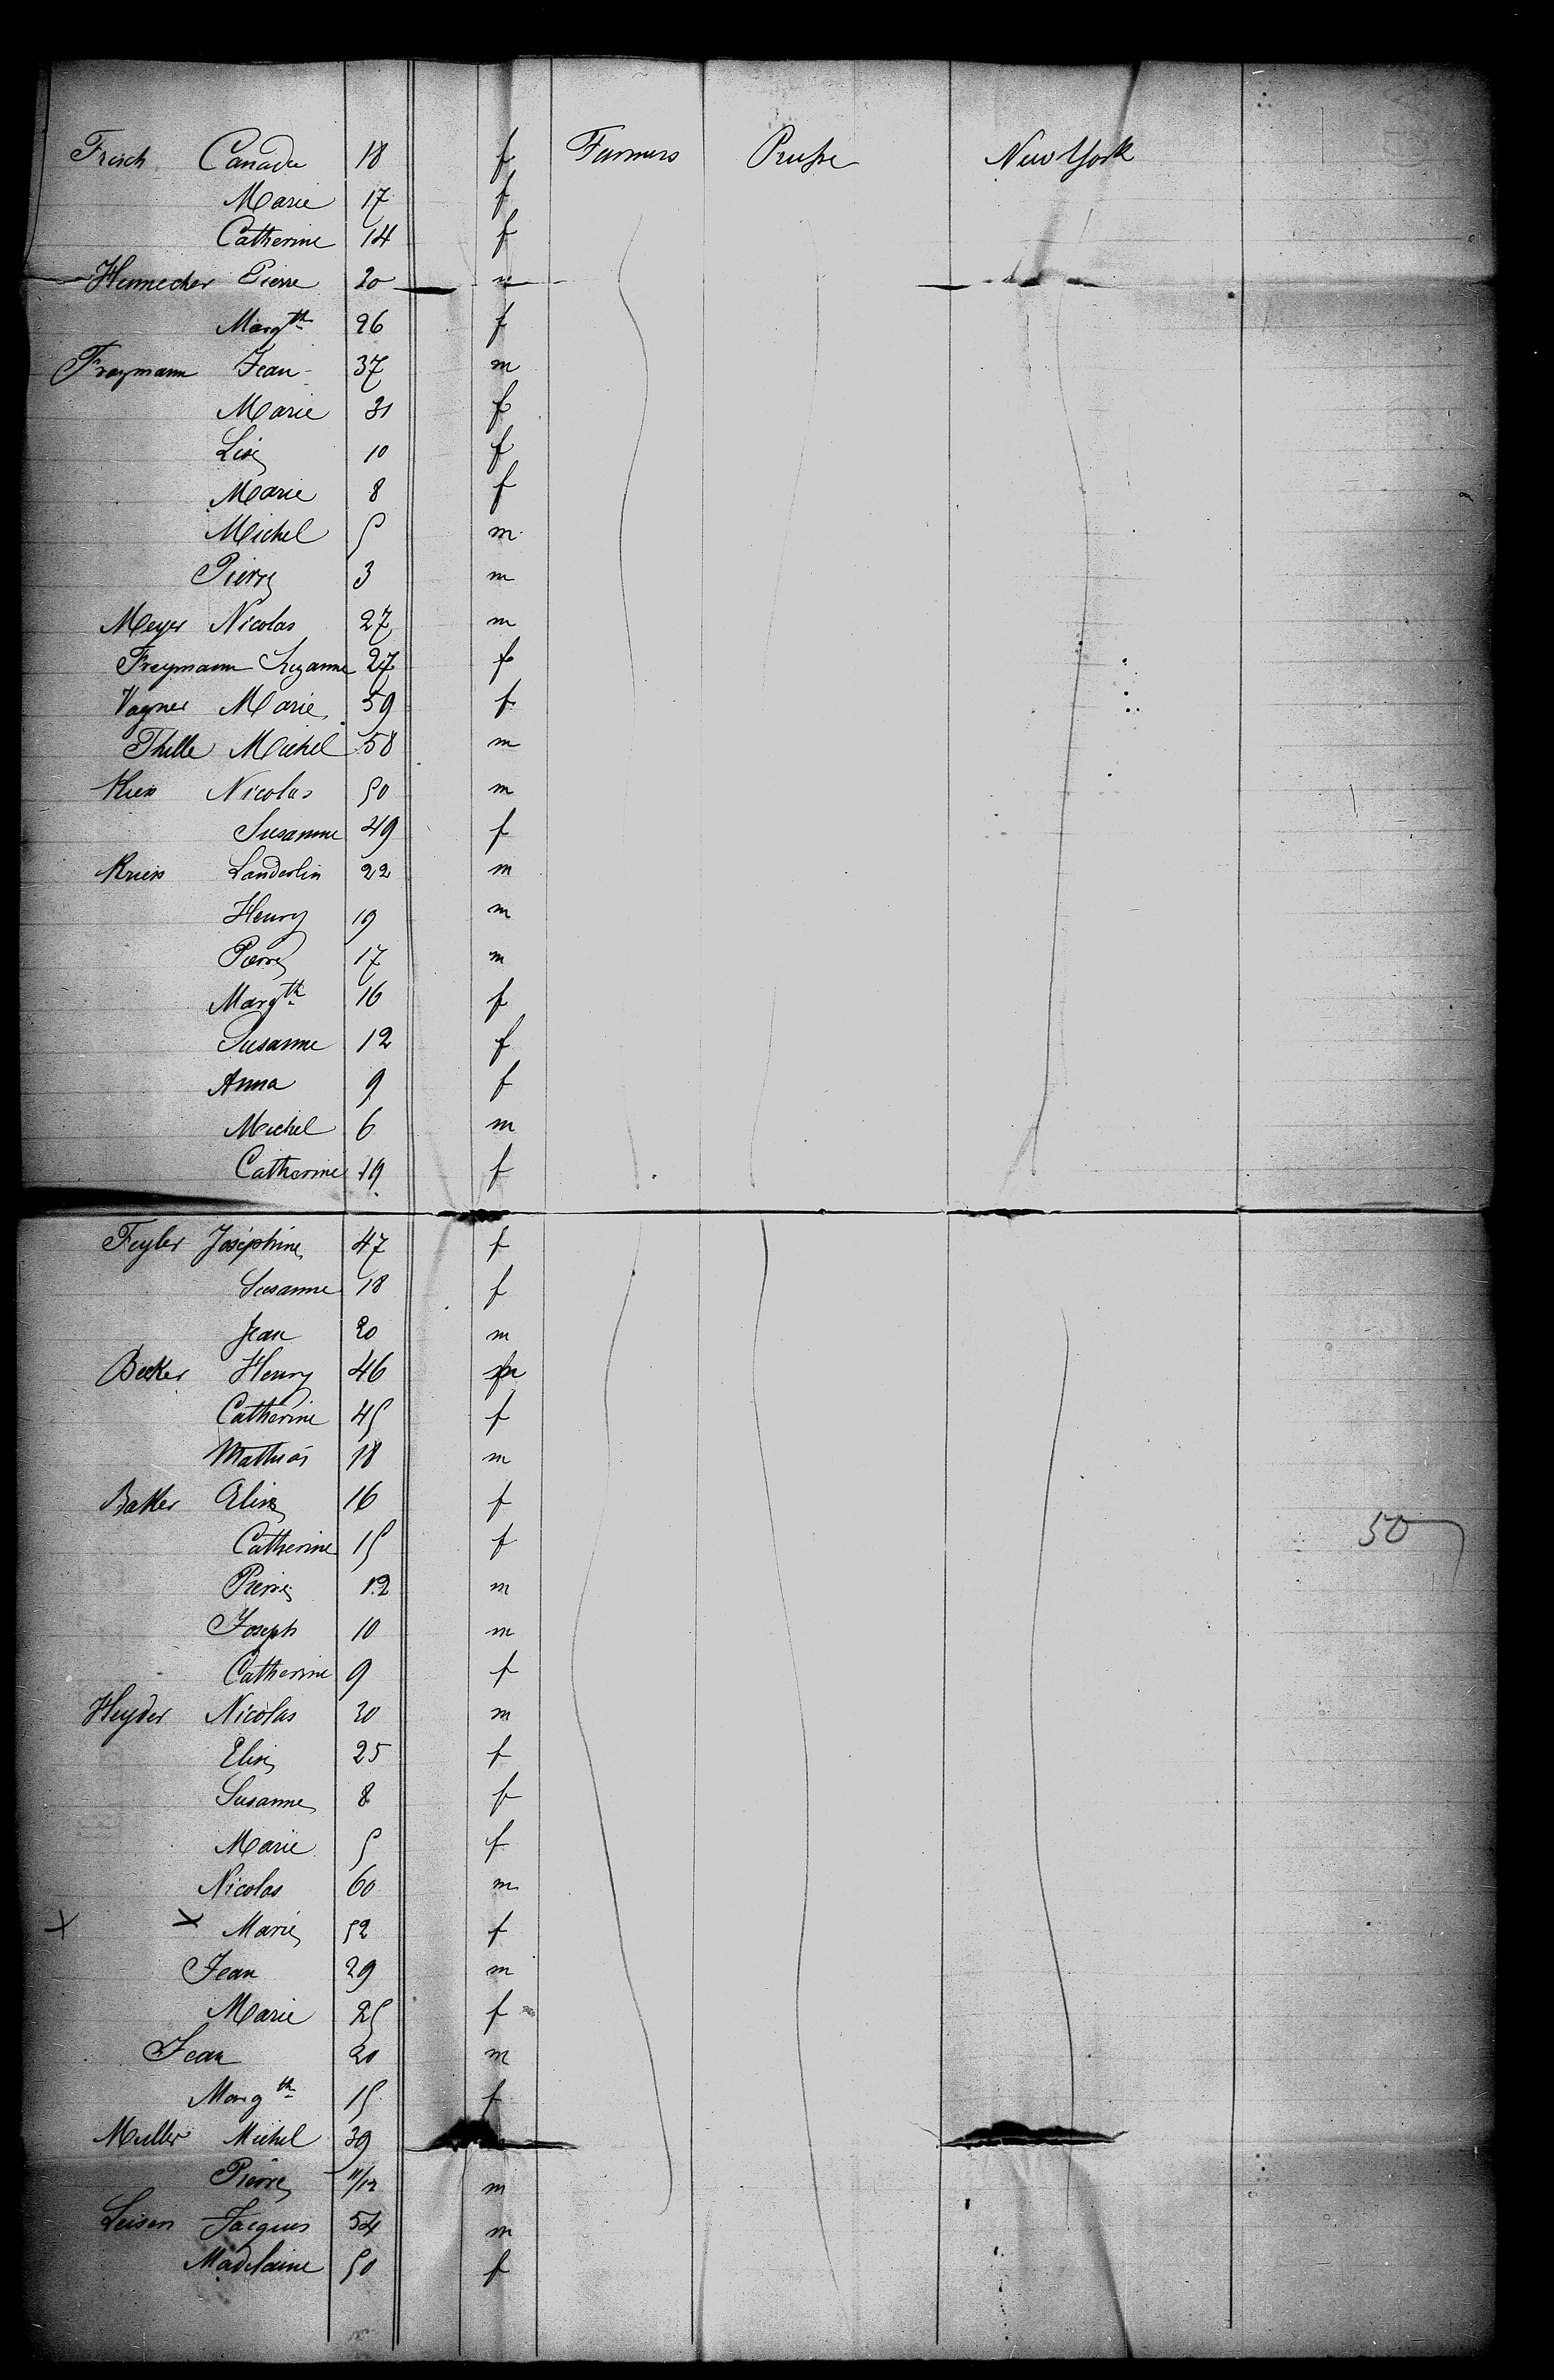 Frisch Canada 18 f Farmers Prusse New York
Marie 17 f
Catherine 14 f
Hennecher Pierre 20 m
Margth 26 f
Fraymann Jean 37 m
Marie 31 f
Lise 10 f
Marie 8 f
Michel 5 m
Pierre 3 m
Meyer Nicolas 27 m
Freymann Suzanne 27 f
Vagner Marie 59 f
Thille Michel 58 m
Nicolas 50 m
Susanne 49 f
Kriess Landerlin 22 m
Henry 19 m
Pierre 17 m
Margth 16 f
Susanne 12 f
Anna 9 f
Michel 6 m
Catherine 19 f
Feyler Joséphine 47 f
Susanne 18 f
Jean 20 m
Becker Henry 46 m
Catherine 45 f
Mathias 18 m
Baker Elise 16 f
Catherine 15 f
Pierre 12 m
Joseph 10 m
Catherine 9 f
50
Heyder Nicolas 30 m
Elise 25 f
Susanne 8 f
Marie 5 f
Nicolas 60 m
x x Marie 52 f
Jean 29 m
Marie 25 f
Jean 20 m
Margth 15 f
Muller Michel 39
Pierre 11/12 m
Leisen Jacques 54 m
Madelaine 50 f